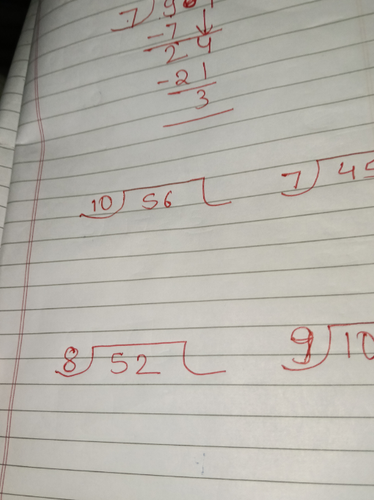 7
-7
24
-21
3
10) 56 7) 45
8) 52 9) 10